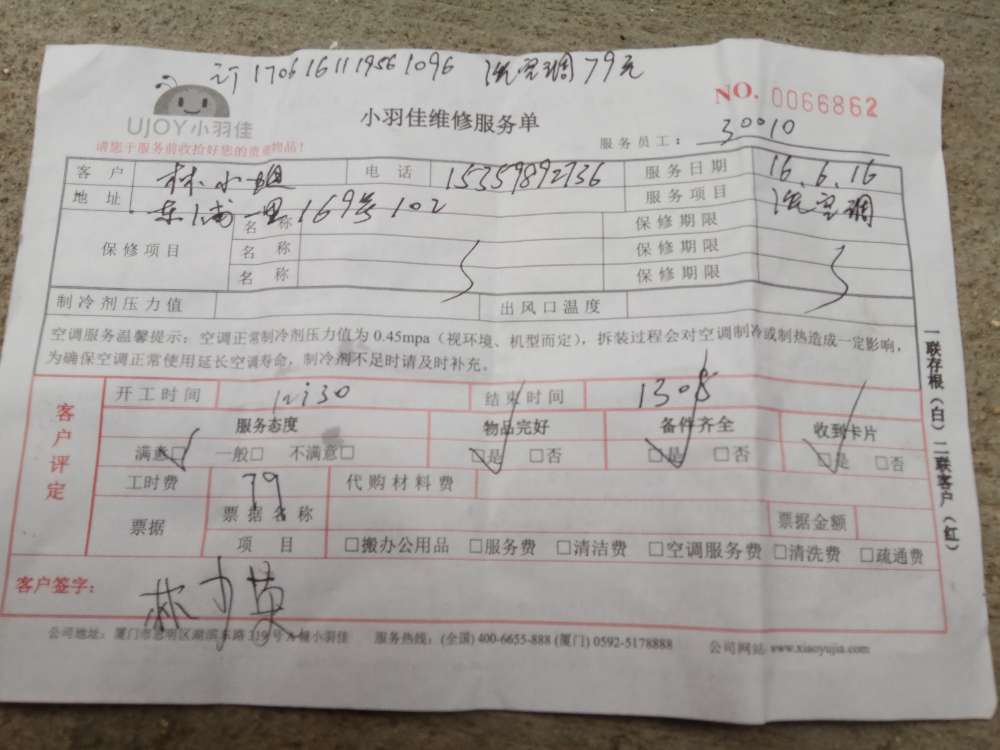 订1706161119561096 洗空调79元
NO. 0066862
UJOY小羽佳
小羽佳维修服务单
服务员工: 30010
请您于服务前收拾好您的贵重物品!
客户 林小姐 电话 15359892736 服务日期 16.6.16
地址 东浦一里169号102 服务项目 洗空调
保修项目
名称 保修期限
名称 保修期限
名称 保修期限
制冷剂压力值 出风口温度
空调服务温馨提示:空调正常制冷剂压力值为0.45mpa(视环境、机型而定),拆装过程会对空调制冷或制热造成一定影响,
为确保空调正常使用延长空调寿命,制冷剂不足时请及时补充。
客户评定
开工时间 12:30 结束时间 1305
服务态度 物品完好 备件齐全 收到卡片
满意□ 一般□ 不满意□ □是 □否 □是 □否 □是 □否
工时费 79 代购材料费
票据 票据名称 票据金额
项目 □搬办公用品 □服务费 □清洁费 □空调服务费 □清洗费 □疏通费
客户签字:
公司地址:厦门市思明区湖滨东路319号A幢小羽佳 服务热线:(全国)400-6655-888 (厦门)0592-5178888 公司网站 www.xiaoyujia.com
一联存根(白)二联客户(红)